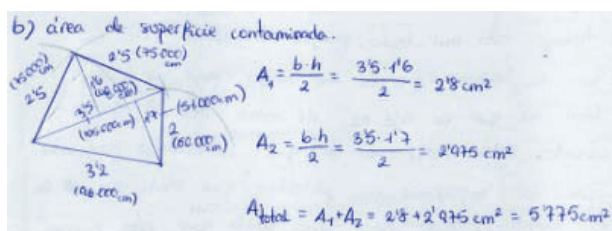 b) área de superficie contaminada.
2'5 (75.000) cm
(75.000) cm
2'5
1'6
(48.000) cm
3'5
(105.000 cm)
1'7
(51.000 cm)
2
(60.000) cm
3'2
(96.000 cm)
A₁ = b·h / 2 = 3'5·1'6 / 2 = 2'8 cm²
A₂ = b·h / 2 = 3'5·1'7 / 2 = 2'975 cm²
A total = A₁+A₂ = 2'8+2'975 cm² = 5'775 cm²